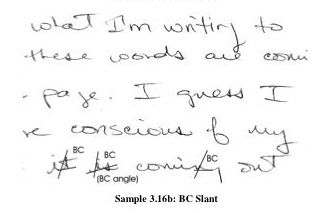 what I'm writing to
these words are comi
- page. I guess I
re conscious of my
BC BC BC
it is coming out
(BC angle)
Sample 3.16b: BC Slant